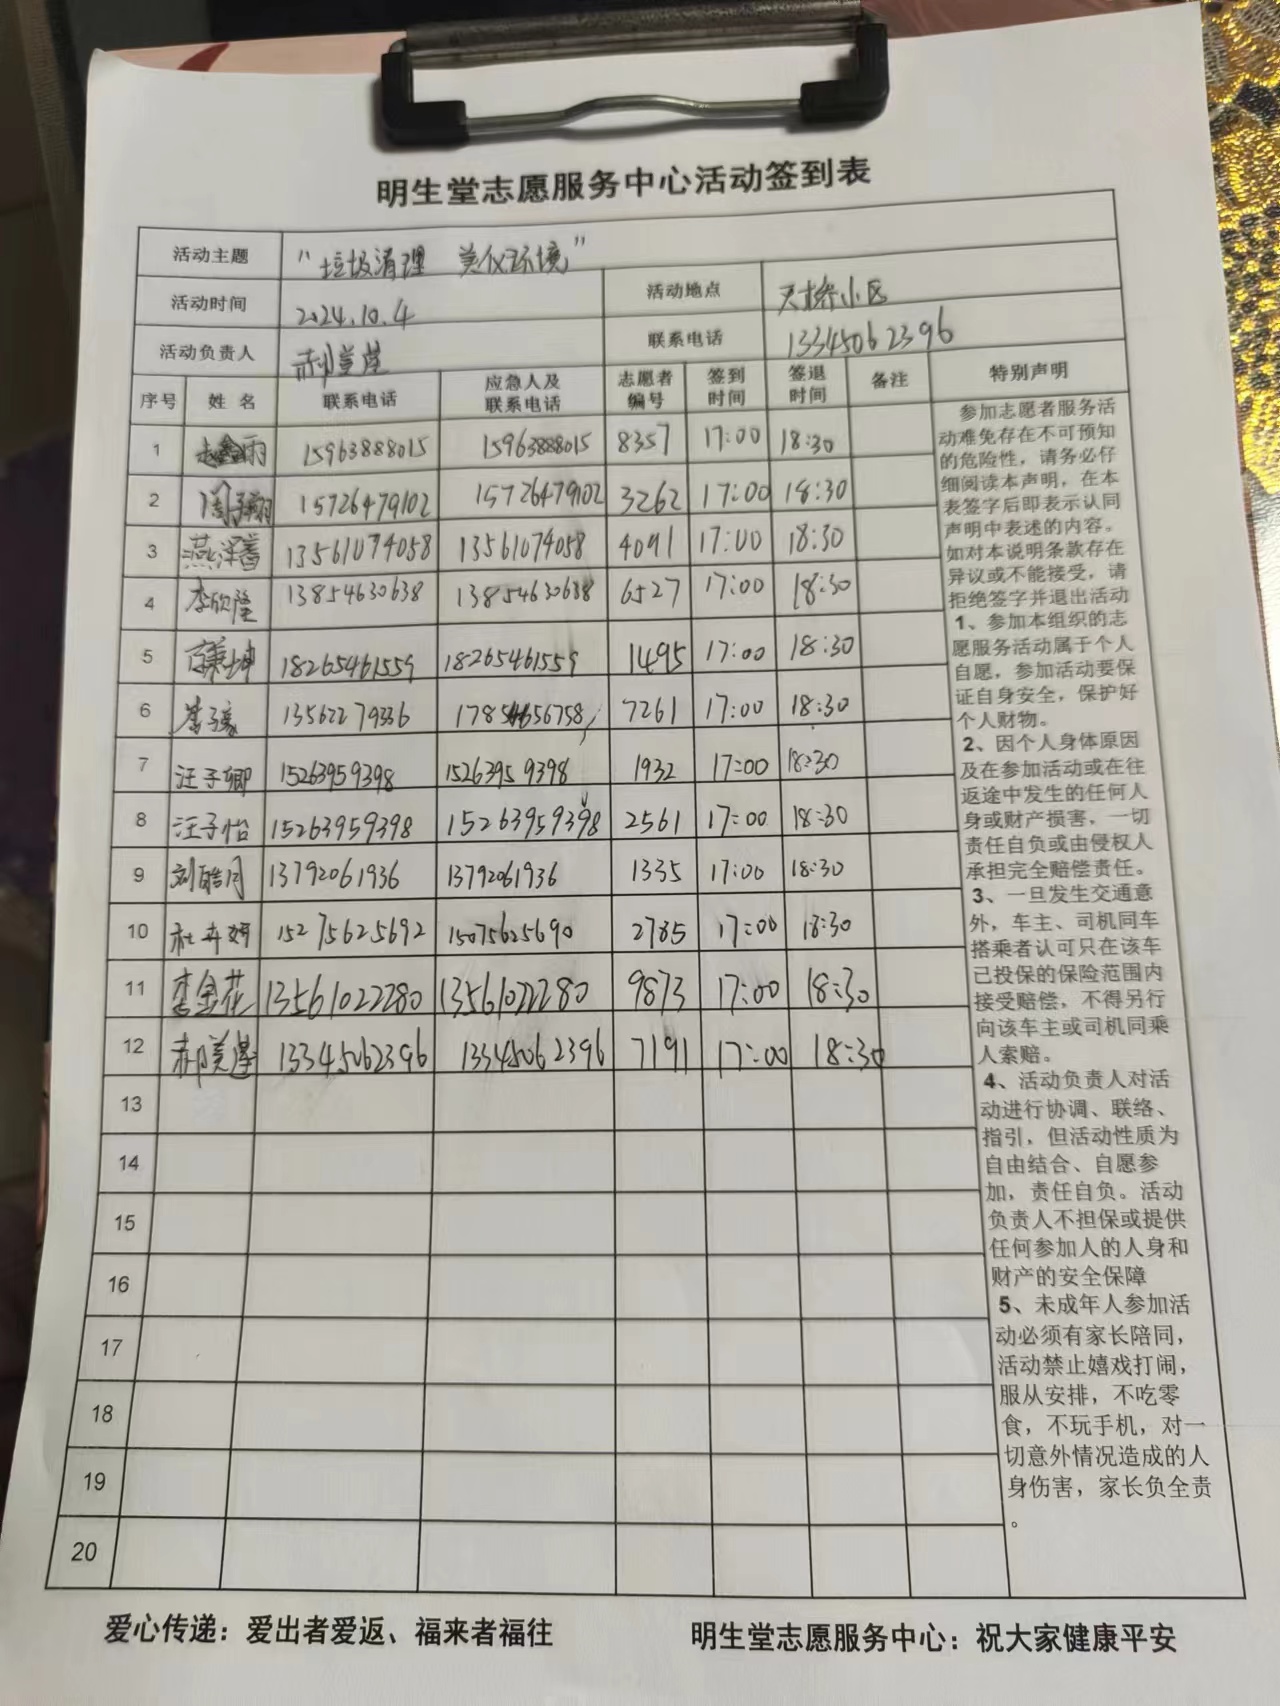 明生堂志愿服务中心活动签到表
活动主题 "垃圾清理 美化环境"
活动时间 2024.10.4 活动地点 天桥小区
活动负责人 联系电话 13345062396
序号 姓名 联系电话 应急人及联系电话 志愿者编号 签到时间 签退时间 备注 特别声明
1 15963888015 15963888015 8357 17:00 18:30
2 15726479102 15726479102 3262 17:00 18:30
3 13561074058 13561074058 4091 17:00 18:30
4 李欣隆 13854630638 13854630638 6527 17:00 18:30
5 18265461559 18265461559 1495 17:00 18:30
6 13562279336 7261 17:00 18:30
7 汪子卿 15263959398 15263959398 1932 17:00 18:30
8 汪子怡 15263959398 15263959398 2561 17:00 18:30
9 刘皓月 13792061936 13792061936 1335 17:00 18:30
10 杜卉妍 15275625692 15075625690 2785 17:00 18:30
11 李金花 13561022280 13561022280 9873 17:00 18:30
12 13345062396 13345062396 7191 17:00 18:30
13
14
15
16
17
18
19
20
参加志愿者服务活
动难免存在不可预知
的危险性，请务必仔
细阅读本声明，在本
表签字后即表示认同
声明中表述的内容。
如对本说明条款存在
异议或不能接受，请
拒绝签字并退出活动
1、参加本组织的志
愿服务活动属于个人
自愿，参加活动要保
证自身安全，保护好
个人财物。
2、因个人身体原因
及在参加活动或在往
返途中发生的任何人
身或财产损害，一切
责任自负或由侵权人
承担完全赔偿责任。
3、一旦发生交通意
外，车主、司机同车
搭乘者认可只在该车
已投保的保险范围内
接受赔偿，不得另行
向该车主或司机同乘
人索赔。
4、活动负责人对活
动进行协调、联络、
指引，但活动性质为
自由结合、自愿参
加，责任自负。活动
负责人不担保或提供
任何参加人的人身和
财产的安全保障
5、未成年人参加活
动必须有家长陪同，
活动禁止嬉戏打闹，
服从安排，不吃零
食，不玩手机，对一
切意外情况造成的人
身伤害，家长负全责
。
爱心传递：爱出者爱返、福来者福往 明生堂志愿服务中心：祝大家健康平安